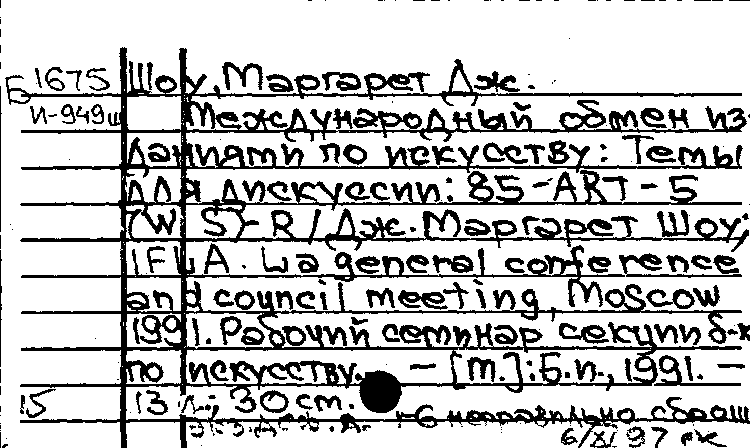 Б 1675 Шоу, Маргарет Дж.
И-949ш Международный обмен из-
даниями по искусству: Темы
для дискуссии: 85-ART-5
(WS)-R / Дж. Маргарет Шоу;
IFLA. general conference
and council meeting, Moscow
1991. Рабочий семинар секции б-к
по искусству. — [М.]: Б.и., 1991. —
15 13 л.; 30 cm.
неправильно сброш
6/XI 97